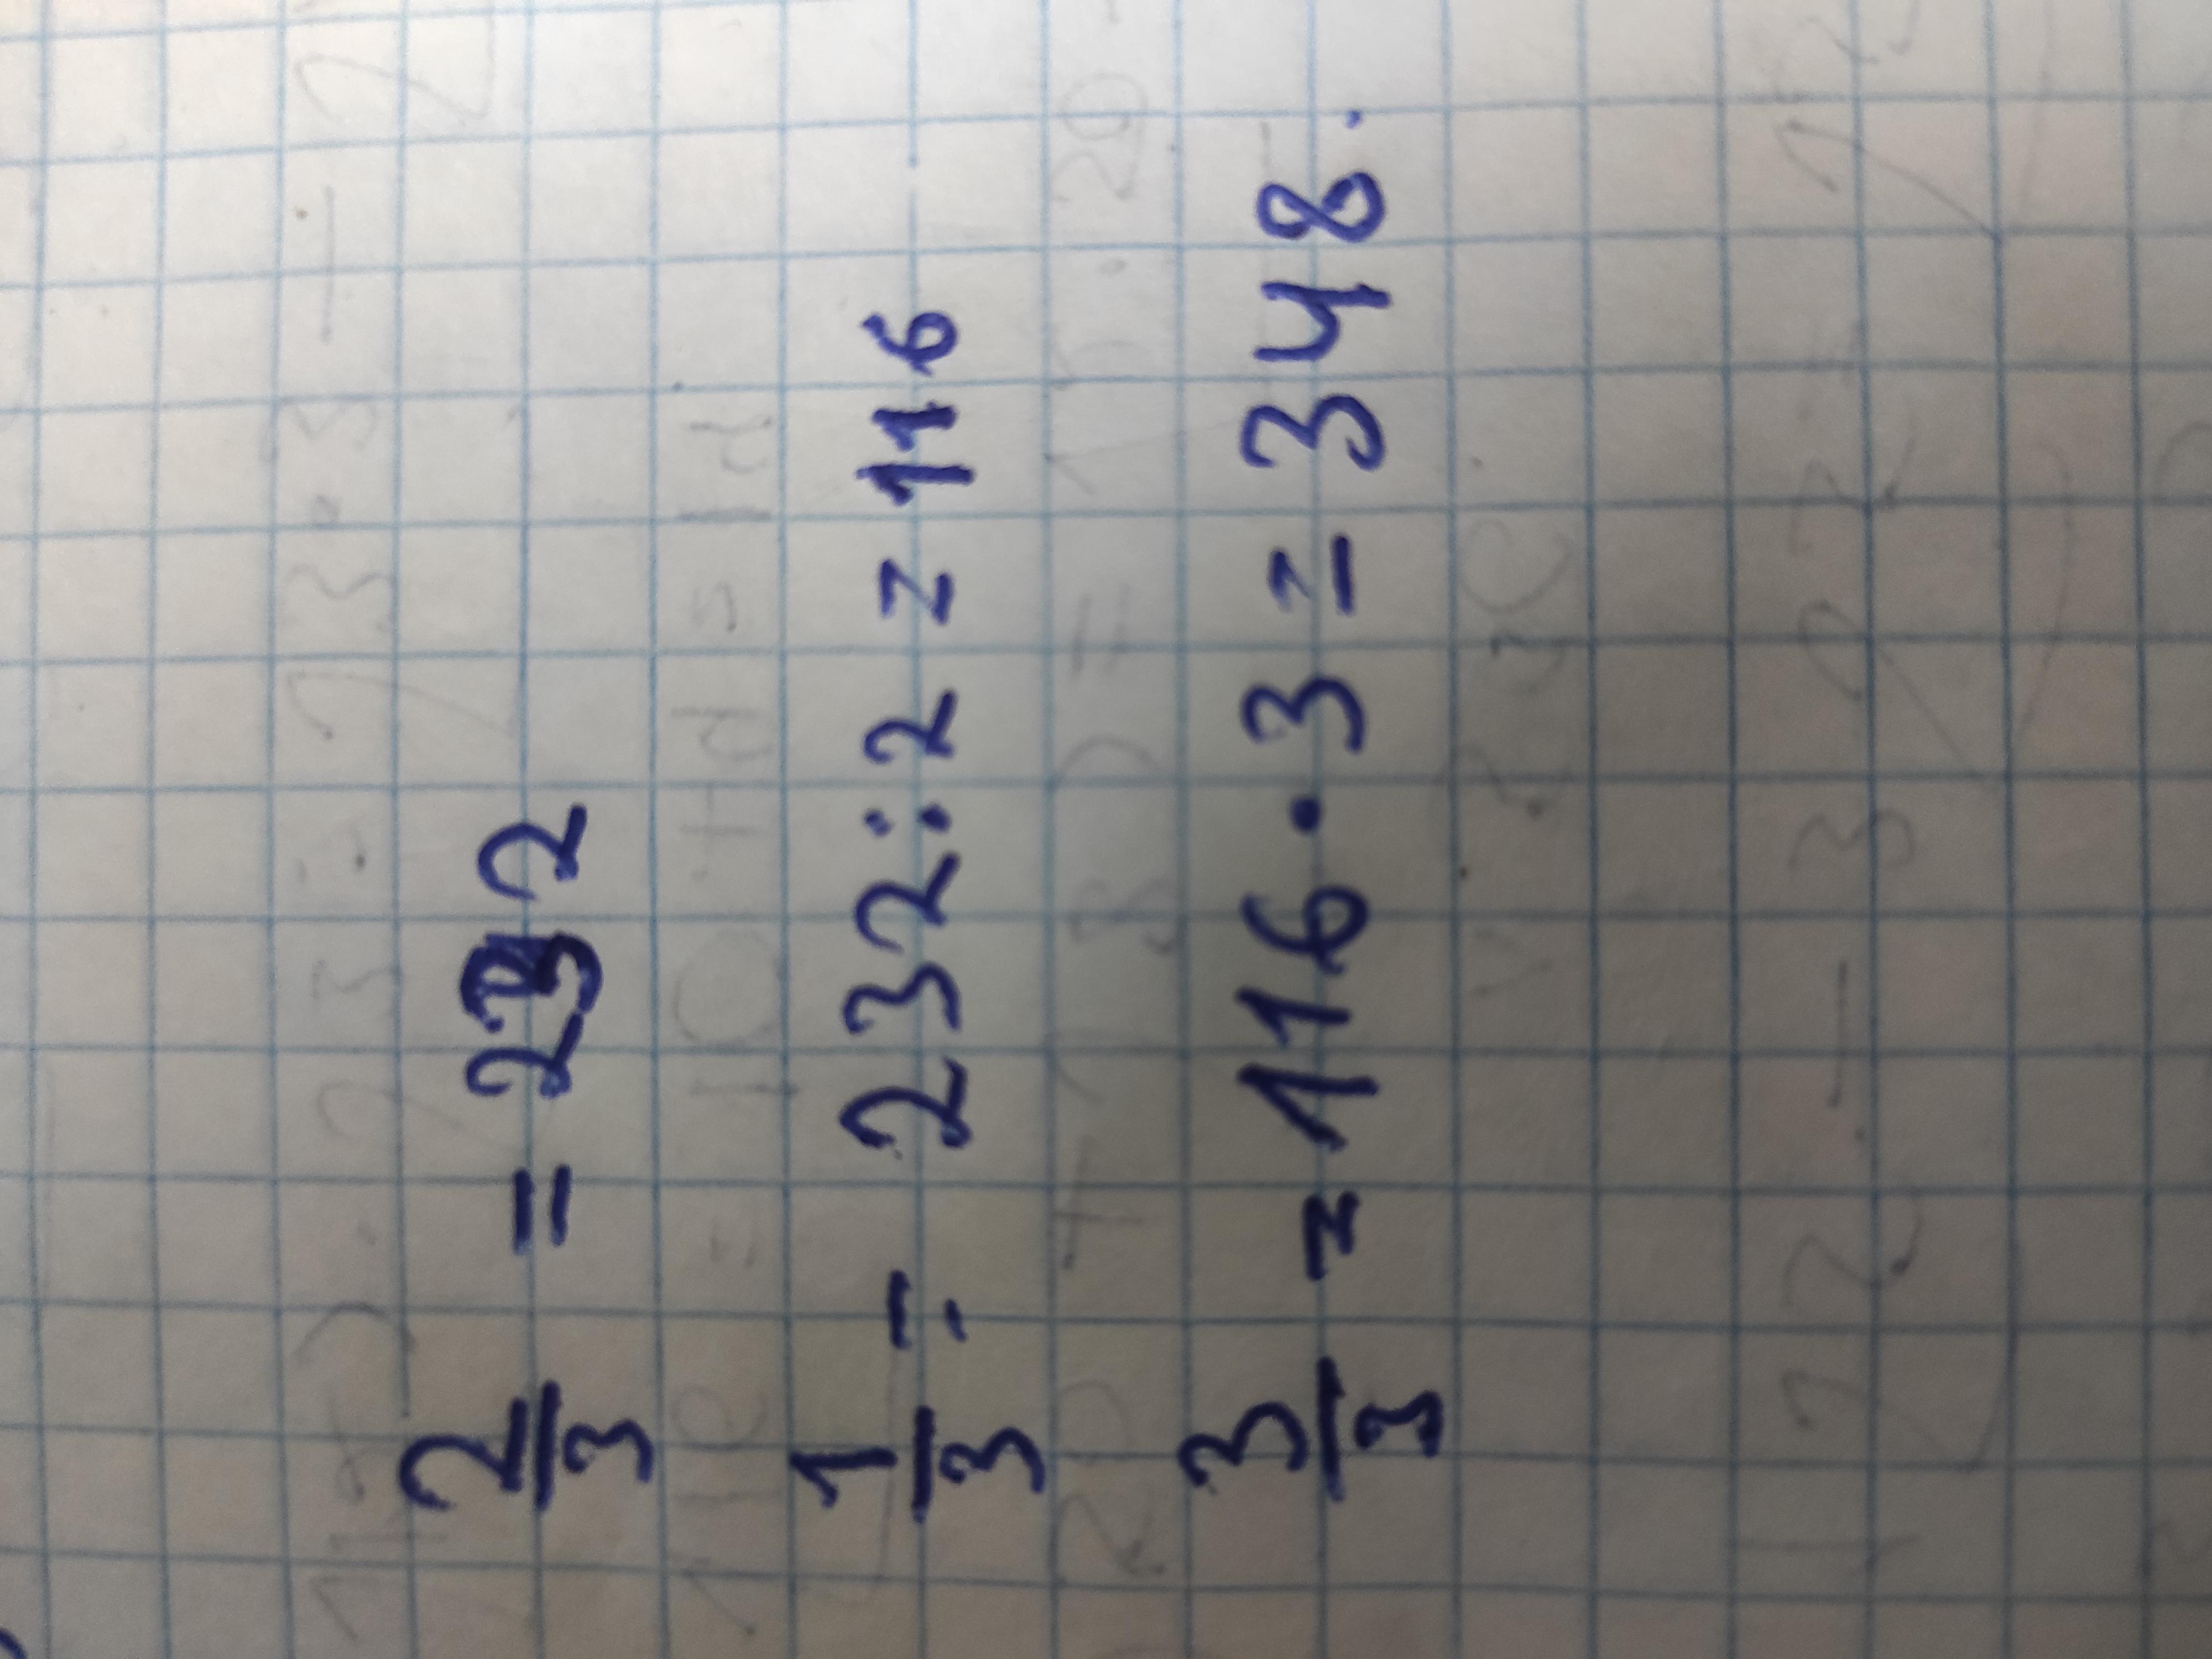 2/3 = 232
1/3 = 232 : 2 = 116
3/3 = 116 · 3 = 348.